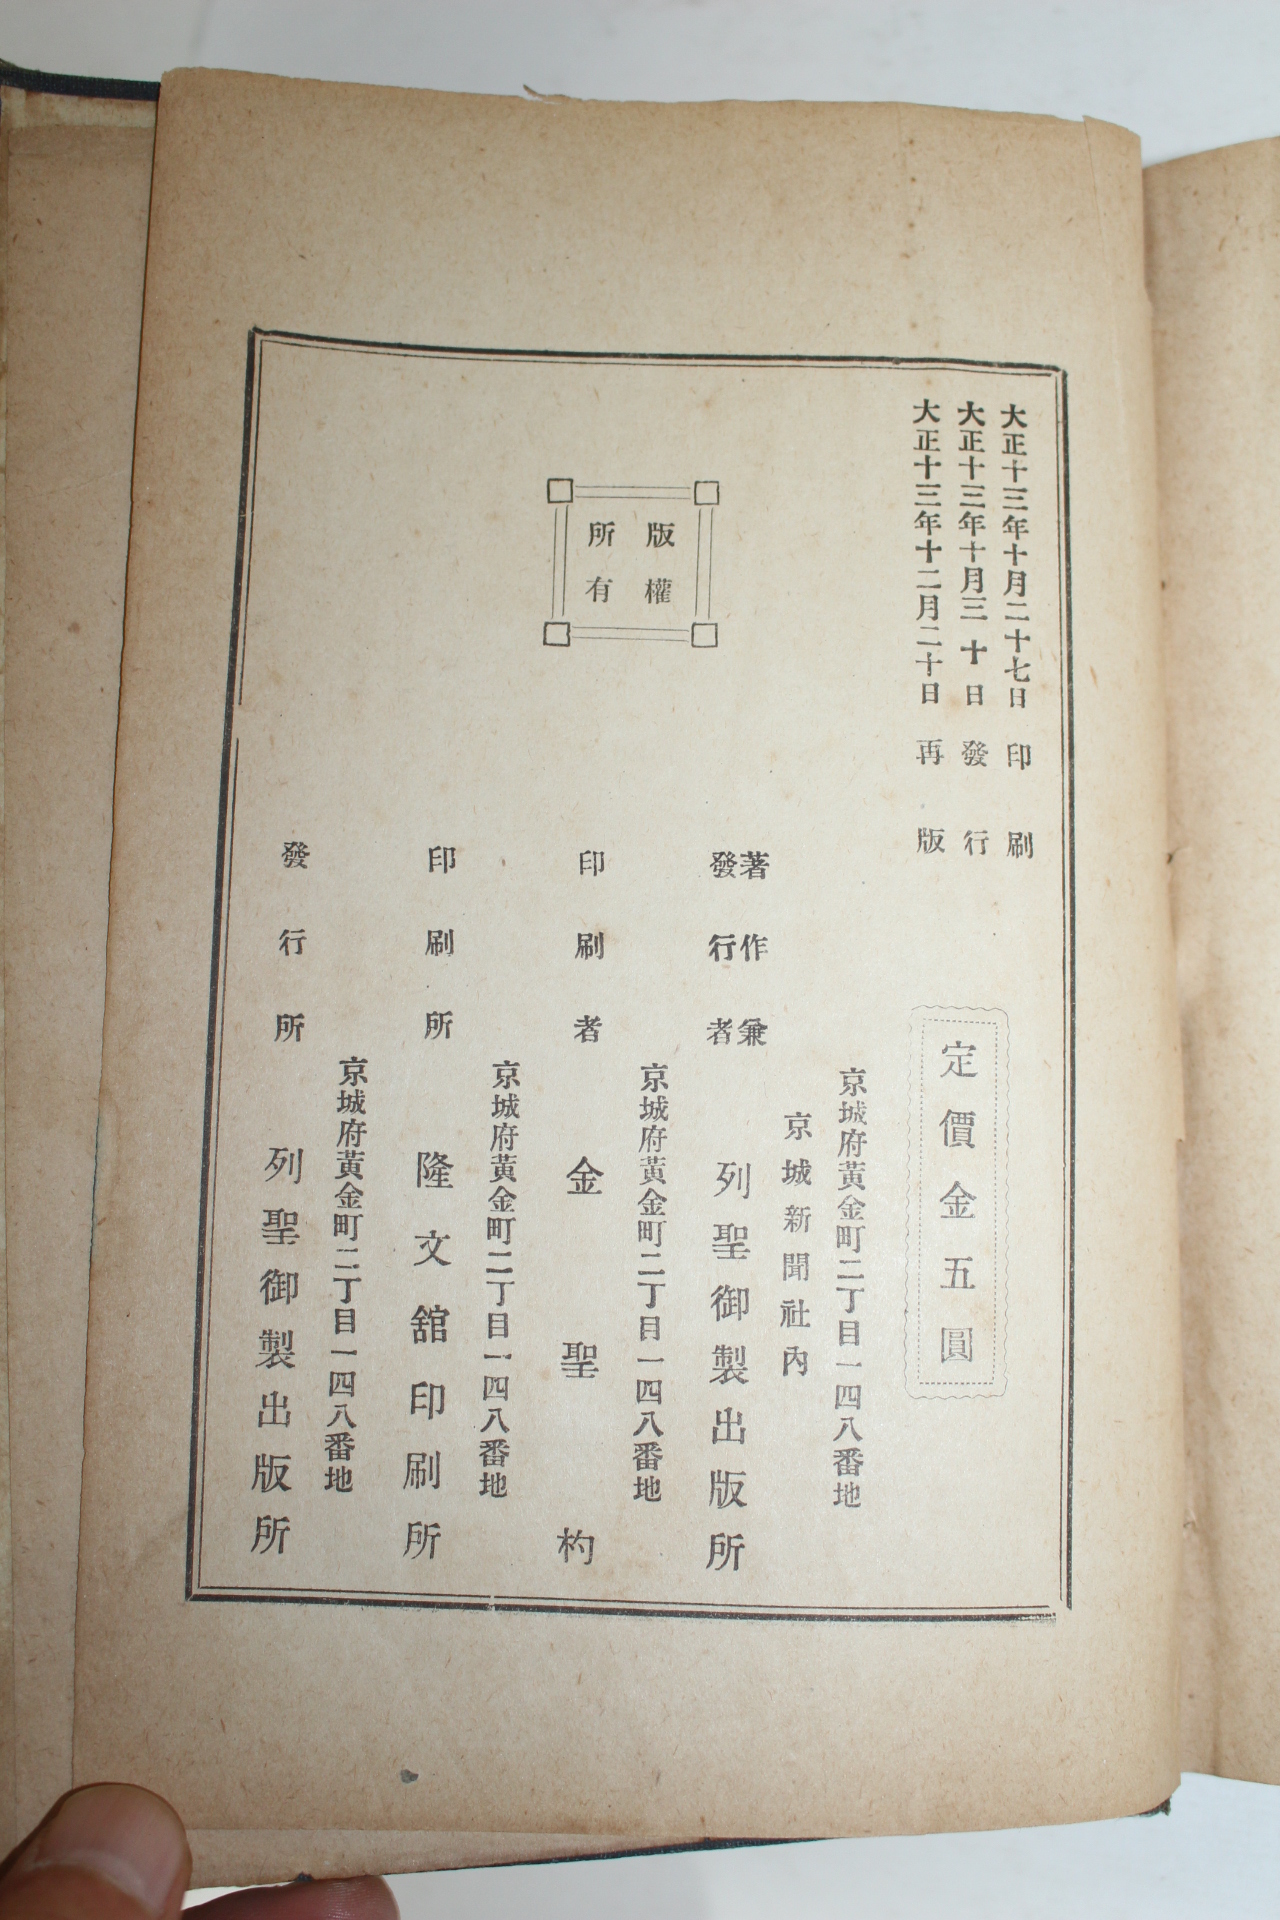 大正十三年十月二十七日印刷
大正十三年十月三十日發行
大正十三年十二月二十日再版
定價金五圓
版權
所有
京城府黃金町二丁目一四八番地
京城新聞社內
著作兼
發行者
列聖御製出版所
京城府黃金町二丁目一四八番地
印刷者 金聖杓
京城府黃金町二丁目一四八番地
印刷所 隆文舘印刷所
京城府黃金町二丁目一四八番地
發行所 列聖御製出版所